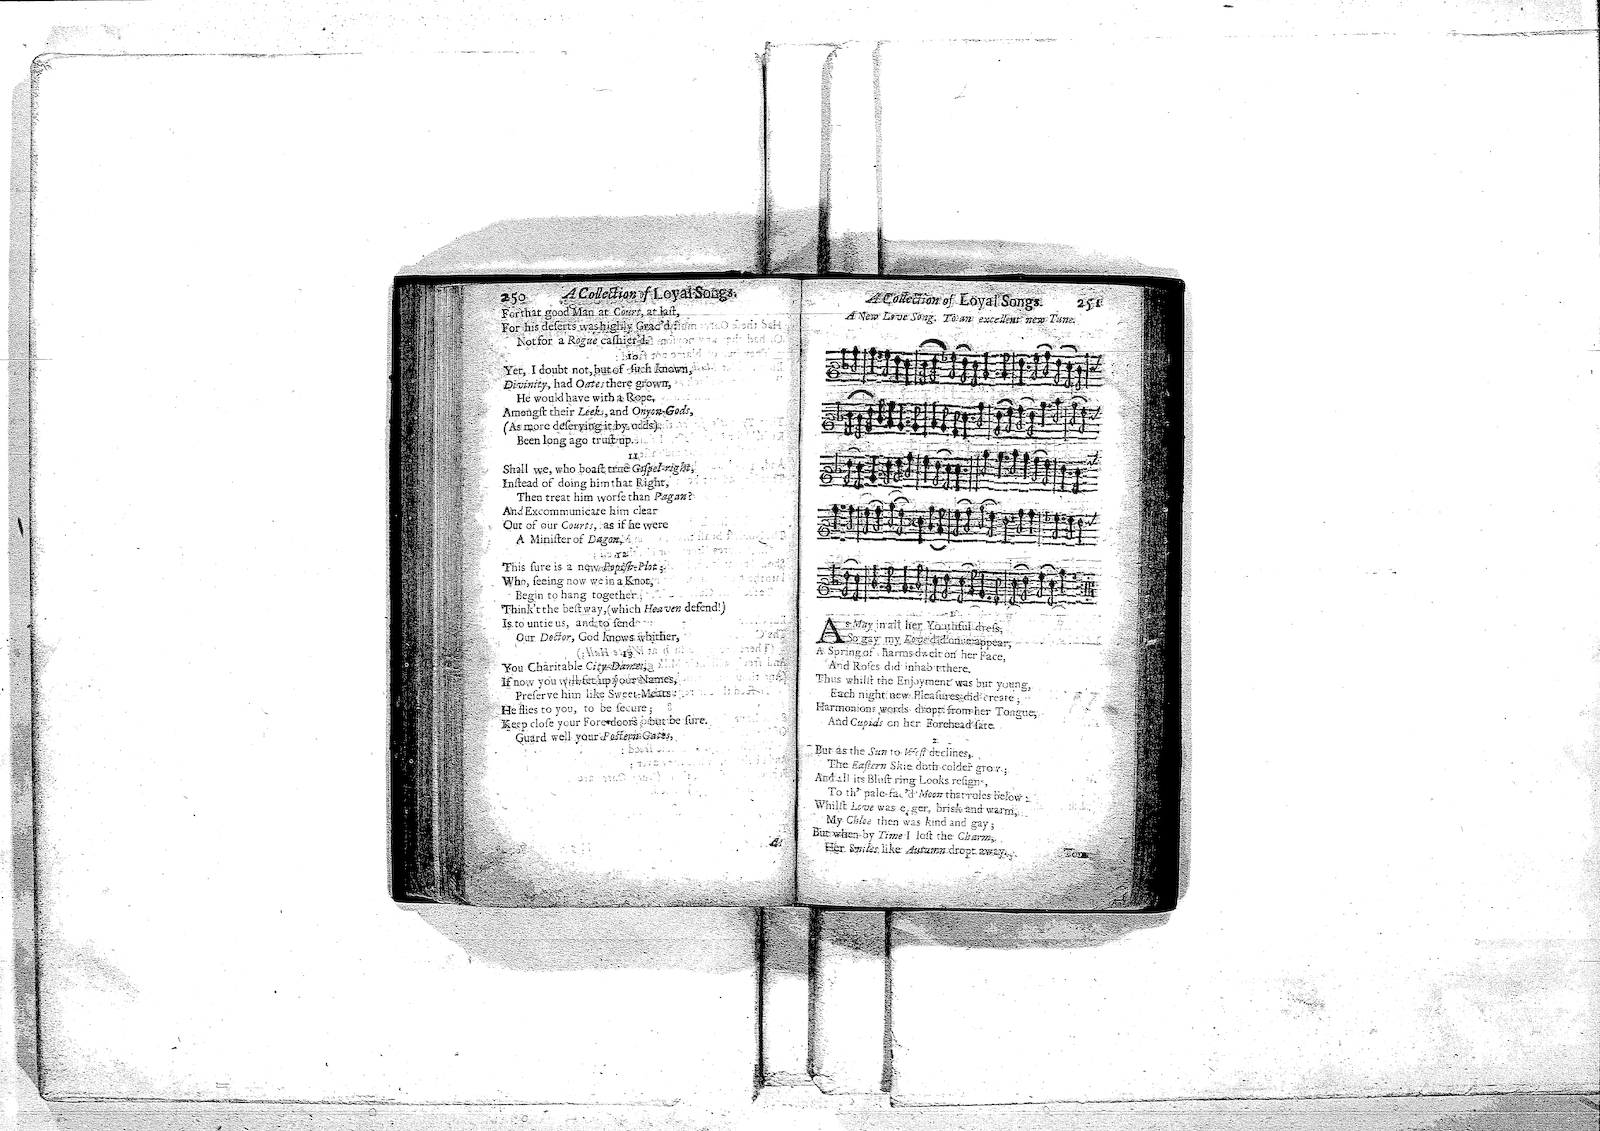 250 A Collection of Loyal Songs.
For that good Man at Court, at laſt,
For his deſerts was highly Grac'd,
Not for a Rogue caſhier'd.
10.
Yet, I doubt not, but of ſuch known,
Divinity, had Oates there grown,
He would have with a Rope,
Amongſt their Leeks, and Onyon-Gods,
(As more deſerving it by odds)
Been long ago truſt up.
11
Shall we, who boaſt true Goſpel-right,
Inſtead of doing him that Right,
Then treat him worſe than Pagan?
And Excommunicate him clear
Out of our Courts, as if he were
A Miniſter of Dagon,
12
This ſure is a new Popiſh-Plot;
Who, ſeeing now we in a Knot,
Begin to hang together,
Think't the beſt way, (which Heaven defend!)
Is to untie us, and to ſend
Our Doctor, God knows whither,
13
You Charitable City-Dames,
If now you will ſet up your Names,
Preſerve him like Sweet-Meats:
He flies to you, to be ſecure;
Keep cloſe your Fore-doors, but be ſure.
Guard well your Poſtern-Gates,
A
A Collection of Loyal Songs. 251
A New Love Song. To an excellent new Tune.
1
As May in all her Youthful dreſs,
So gay my Love did once appear,
A Spring of Charms dwelt on her Face,
And Roſes did inhabit there.
Thus whilſt the Enjoyment was but young,
Each night new Pleaſures did create;
Harmonious words dropt from her Tongue,
And Cupids on her Forehead ſate.
2
But as the Sun to Weſt declines,
The Eaſtern Skie doth colder grow;
And all its Bluſt'ring Looks reſigns,
To th' pale-fac'd Moon that rules below:
Whilſt Love was eager, brisk and warm,
My Chloe then was kind and gay;
But when by Time I loſt the Charm,
Her Smiles like Autumn dropt away.